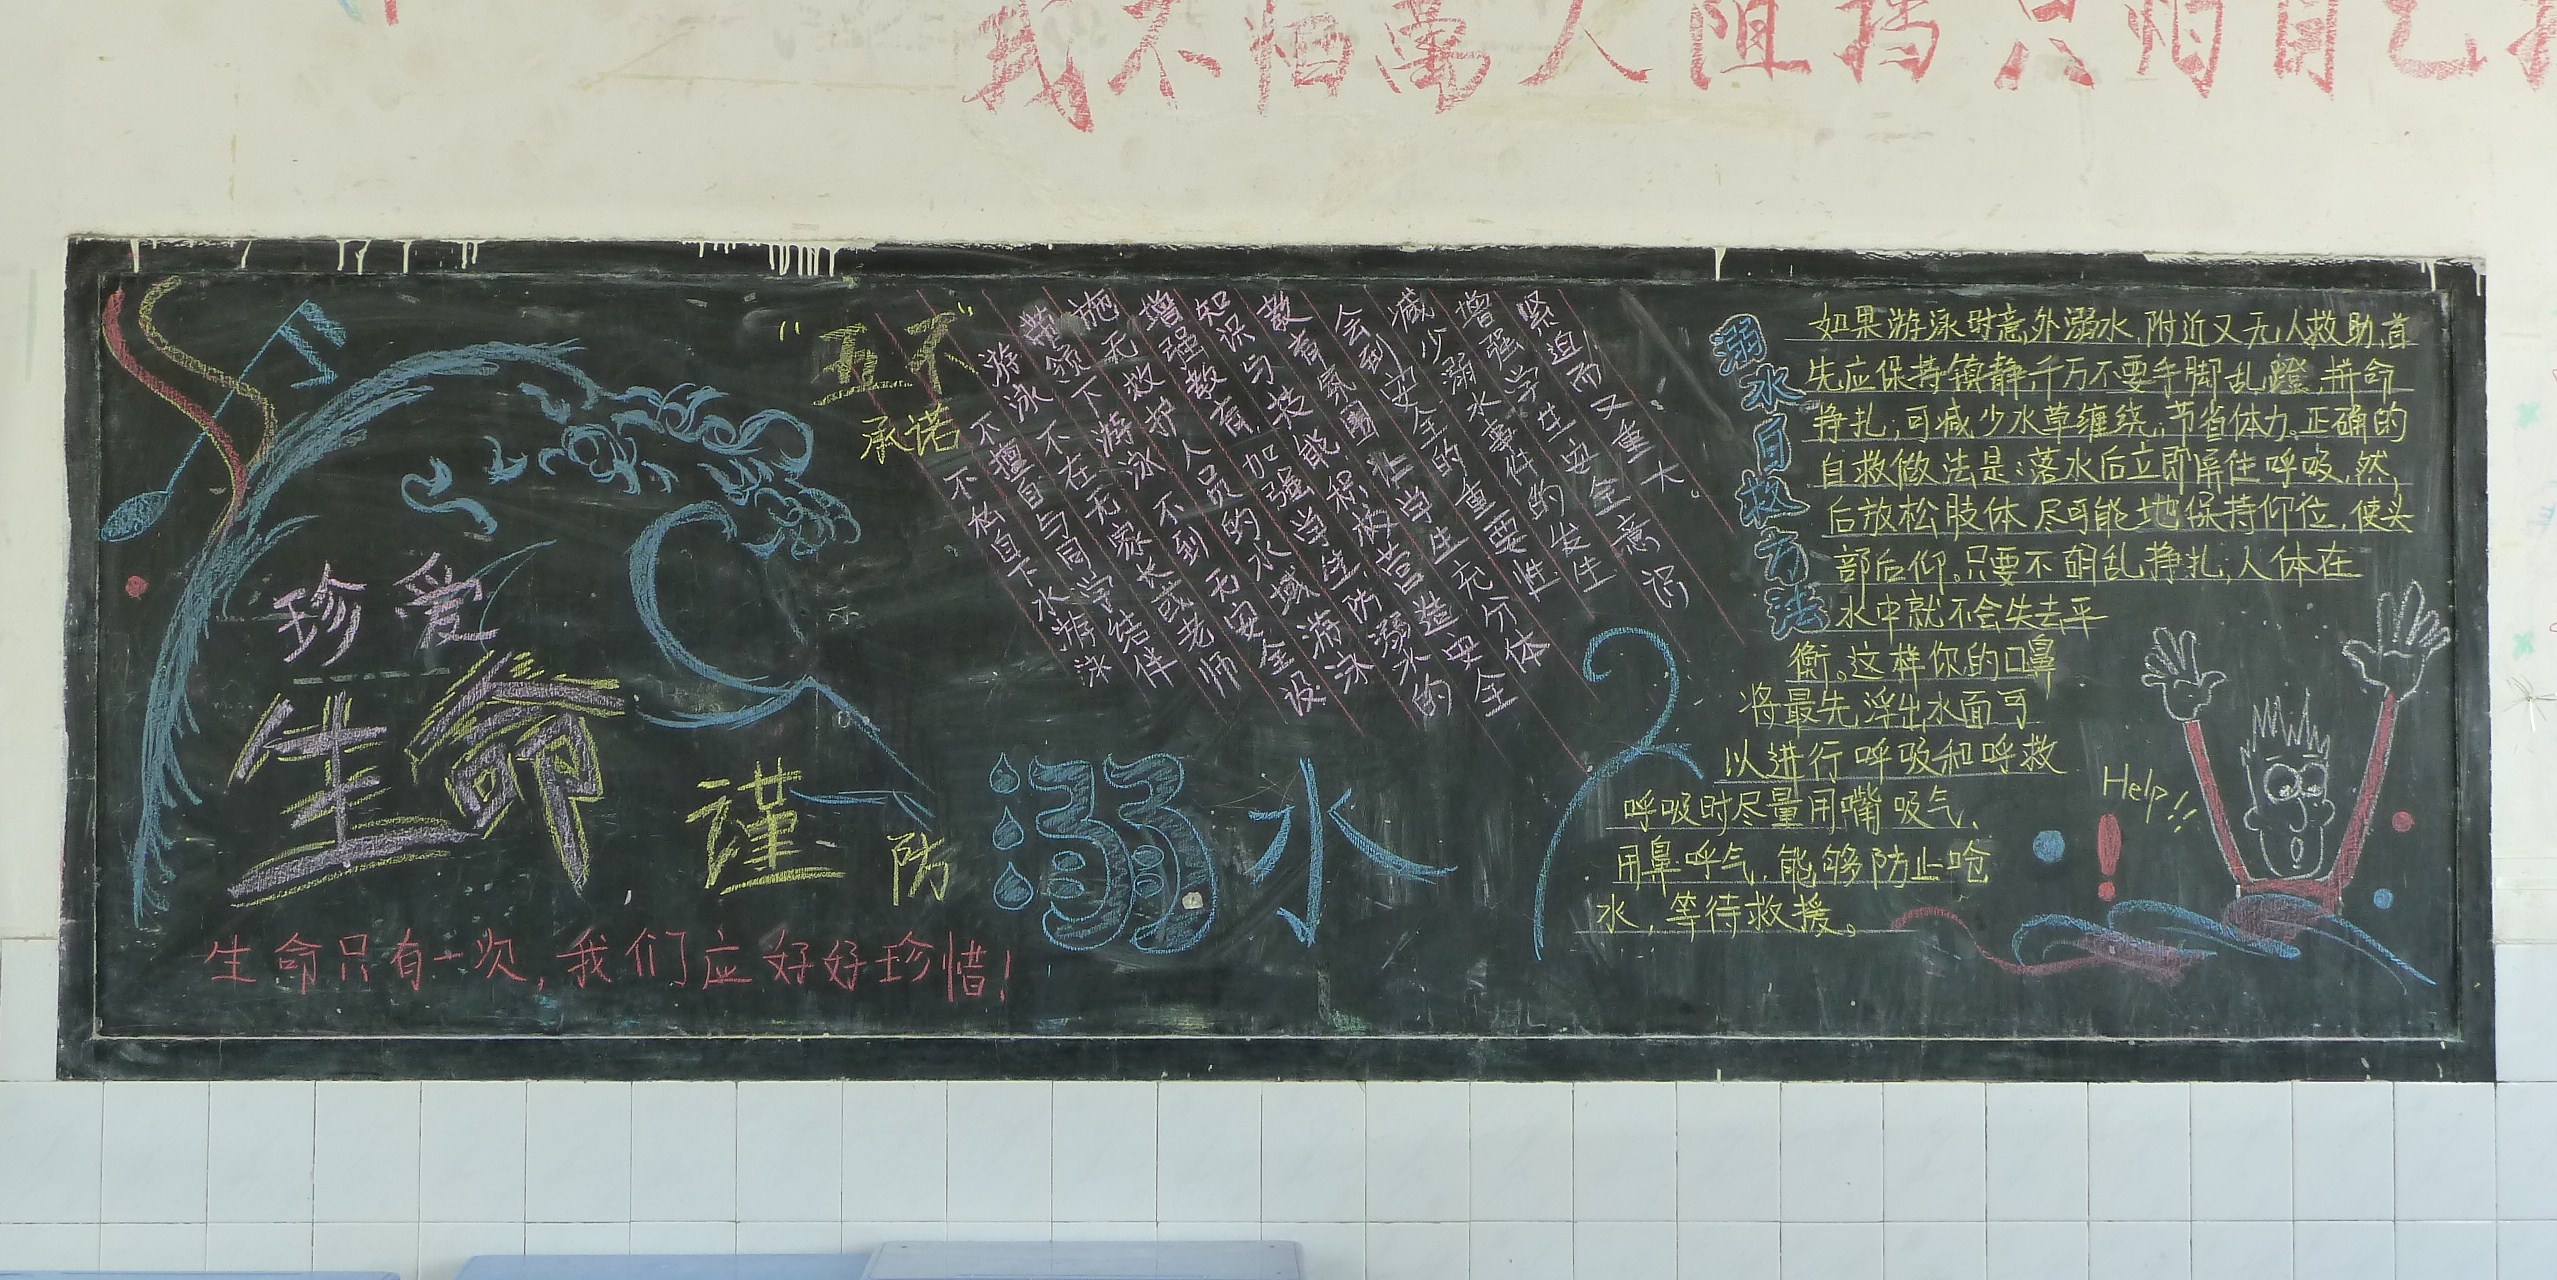 我不怕萬人阻挡只怕自己
珍爱
生命
谨防溺水
生命只有一次，我们应好好珍惜！
"五不"
承诺
不私自下水游泳
不擅自与同学结伴
游泳不在无家长或老师
带领下游泳不到无安全设
施无救护人员的水域游泳
增强教育，加强学生防溺水的
知识与装能积极营造安全
教育氛围，让学生充分体
会到安全的重要性
减少溺水事件的发生
增强学生安全意识
紧迫而又重大。
溺水自救方法
如果游泳时意外溺水，附近又无人救助，首
先应保持镇静，千万不要手脚乱蹬，拼命
挣扎，可减少水草缠绕，节省体力。正确的
自救做法是：落水后立即屏住呼吸，然
后放松肢体，尽可能地保持仰位，使头
部后仰。只要不胡乱挣扎，人体在
水中就不会失去平
衡。这样你的口鼻
将最先浮出水面可
以进行呼吸和呼救
呼吸时尽量用嘴吸气、
用鼻呼气，能够防止呛
水，等待救援。
Help!!